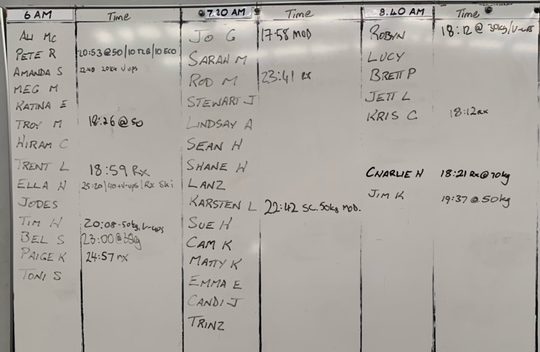 6 AM Time 7.20 AM Time 8.40 AM Time
ALI MC
PETE R 20:53@50/10 TLB/10 ECO
AMANDA S V ups
MEG M
KATINA E
TROY M 18:26@50
HIRAM C
TRENT L 18:59 Rx
ELLA H 25:20/40+V-ups/Rx Ski
JODES
TIM H 20:08-50kg, V-ups
BEL S 23:00@35kg
PAIGE K 24:57 rx
TONI S
JO G 17:58 MOD
SARAH M
ROD M 23:41 rx
STEWART J
LINDSAY A
SEAN H
SHANE W
LANZ
KARSTEN L 22:42 SC. 50kg MOD.
SUE H
CAM K
MATTY K
EMMA E
CANDI-J
TRINZ
ROBYN 18:12@30kg/V-ups
LUCY
BRETT P
JETT L
KRIS C 18:12 rx
CHARLIE H 18:21 Rx@70kg
JIM K 19:37@50kg